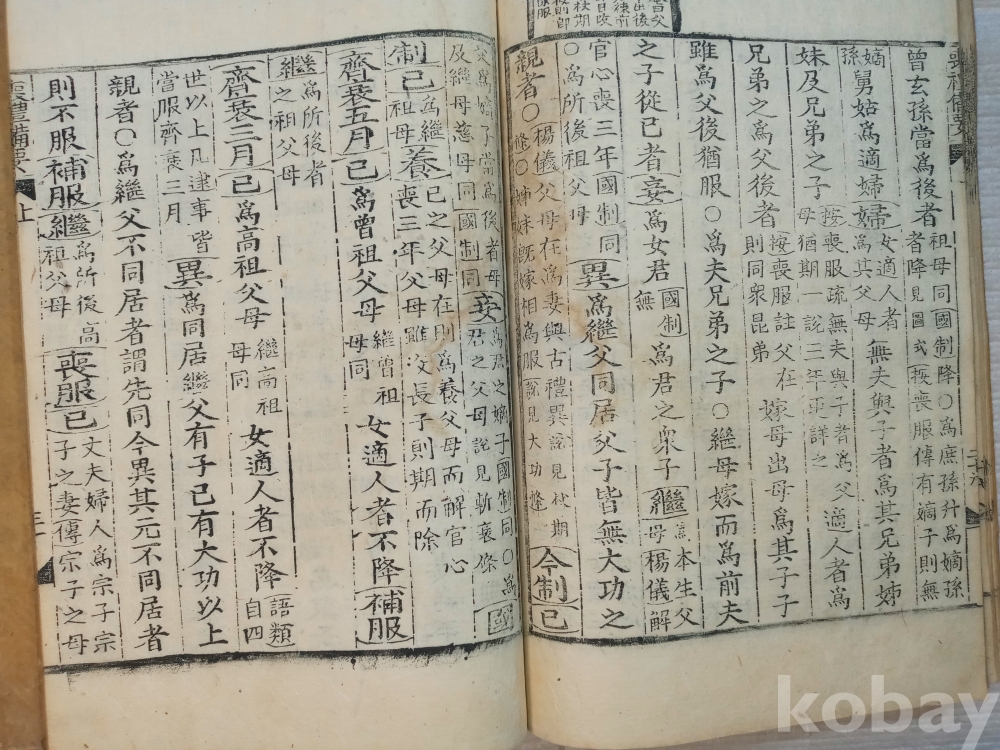 曾玄孫當爲後者祖母同國制降○爲庶孫升爲嫡孫
者降見圖式按喪服傳有嫡子則無
嫡孫舅姑爲適婦婦女適人者爲其父母無夫與子者爲其兄弟姊
妹及兄弟之子按喪服疏無夫與子者爲父
母猶期一說三年更詳之適人者爲
兄弟之爲父後者按喪服註父在
則同衆昆弟嫁母出母爲其子子
雖爲父後猶服○爲夫兄弟之子○繼母嫁而爲前夫
之子從己者妾爲女君國制無爲君之衆子繼爲本生父
母楊儀解
官心喪三年國制同異爲繼父同居父子皆無大功之
○爲所後祖父母
親者○楊儀父母在爲妻與古禮異說見杖期
條○姊妹旣嫁相爲服說見大功條今制己
父爲嫡子當爲後者母
及繼母慈母同國制同妾爲君之嫡子國制同○爲
君之父母說見斬衰條國
制己爲繼祖母養己之父母在則爲養父母而解官心
喪三年父母雖沒長子則期而除
齊衰五月己爲曾祖父母繼曾祖
母同女適人者不降補服
繼爲所後者
之祖父母
齊衰三月己爲高祖父母繼高祖
母同女適人者不降語類
自四
世以上凡逮事皆
當服齊衰三月異爲同居繼父有子已有大功以上
親者○爲繼父不同居者謂先同今異其元不同居者
則不服補服繼爲所後高
祖父母喪服己丈夫婦人爲宗子宗
子之妻傳宗子之母
喪禮備要 上
kobay